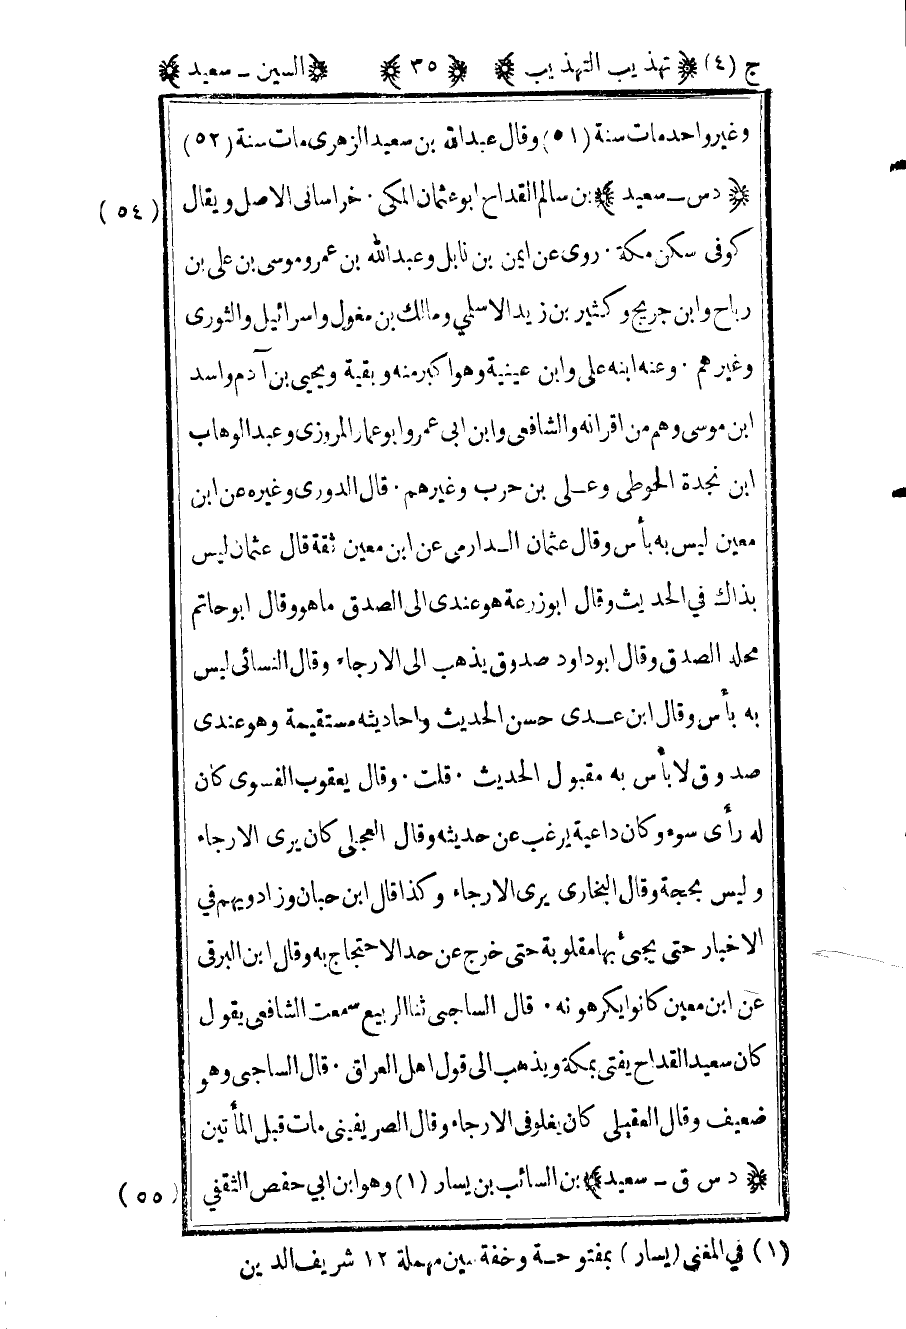 ج (٤) ﴿ تهذيب التهذيب ﴾ ﴿ ٣٥ ﴾ ﴿ السين ـ سعيد ﴾
وغير واحد مات سنة (٥١) وقال عبدالله بن سعيد الزهرى مات سنة (٥٢)
﴿ دس ـ سعيد ﴾ بن سالم القداح ابو عثمان المكى ٠ خراسانى الاصل ويقال (٥٤)
كوفى سكن مكة ٠ روى عن ايمن بن نابل وعبدالله بن عمر وموسى بن على بن
رباح وابن جريج وكثير بن زيد الاسلمي ومالك بن مغول واسرائيل والثورى
وغيرهم ٠ وعنه ابنه على وابن عيينة وهو اكبر منه وبقية ويحيى بن آدم واسد
ابن موسى وهم من اقرانه والشافعى وابن ابى عمر وابو عمار المروزى وعبد الوهاب
ابن نجدة الحوطى وعلى بن حرب وغيرهم ٠ قال الدورى وغيره عن ابن
معين ليس به بأس وقال عثمان الدارمى عن ابن معين ثقة قال عثمان ليس
بذاك في الحديث وقال ابو زرعة هو عندى الى الصدق ما هو وقال ابو حاتم
محله الصدق وقال ابو داود صدوق يذهب الى الارجاء وقال النسائى ليس
به بأس وقال ابن عدى حسن الحديث واحاديثه مستقيمة وهو عندى
صدوق لا بأس به مقبول الحديث ٠ قلت ٠ وقال يعقوب الفسوى كان
له رأى سوء وكان داعية يرغب عن حديثه وقال العجلى كان يرى الارجاء
وليس بحجة وقال البخارى يرى الارجاء وكذا قال ابن حبان وزاد ويهم في
الاخبار حتى يجئ بها مقلوبة حتى خرج عن حد الاحتجاج به وقال ابن البرقى
عن ابن معين كانوا يكرهونه ٠ قال الساجى ثنا الربيع سمعت الشافعى يقول
كان سعيد القداح يفتى بمكة ويذهب الى قول اهل العراق ٠ قال الساجى وهو
ضعيف وقال العقيلى كان يغلو فى الارجاء وقال الصريفينى مات قبل المأتين
﴿ د س ق ـ سعيد ﴾ بن السائب بن يسار (١) وهو ابن ابي حفص الثقفي (٥٥)
(١) في المغني (يسار) بمفتوحة وخفة سين مهملة ١٢ شريف الدين